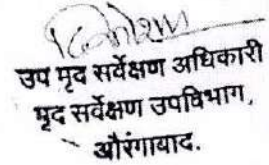 उप मृद सर्वेक्षण अधिकारी
मृद सर्वेक्षण उपविभाग,
औरंगाबाद.